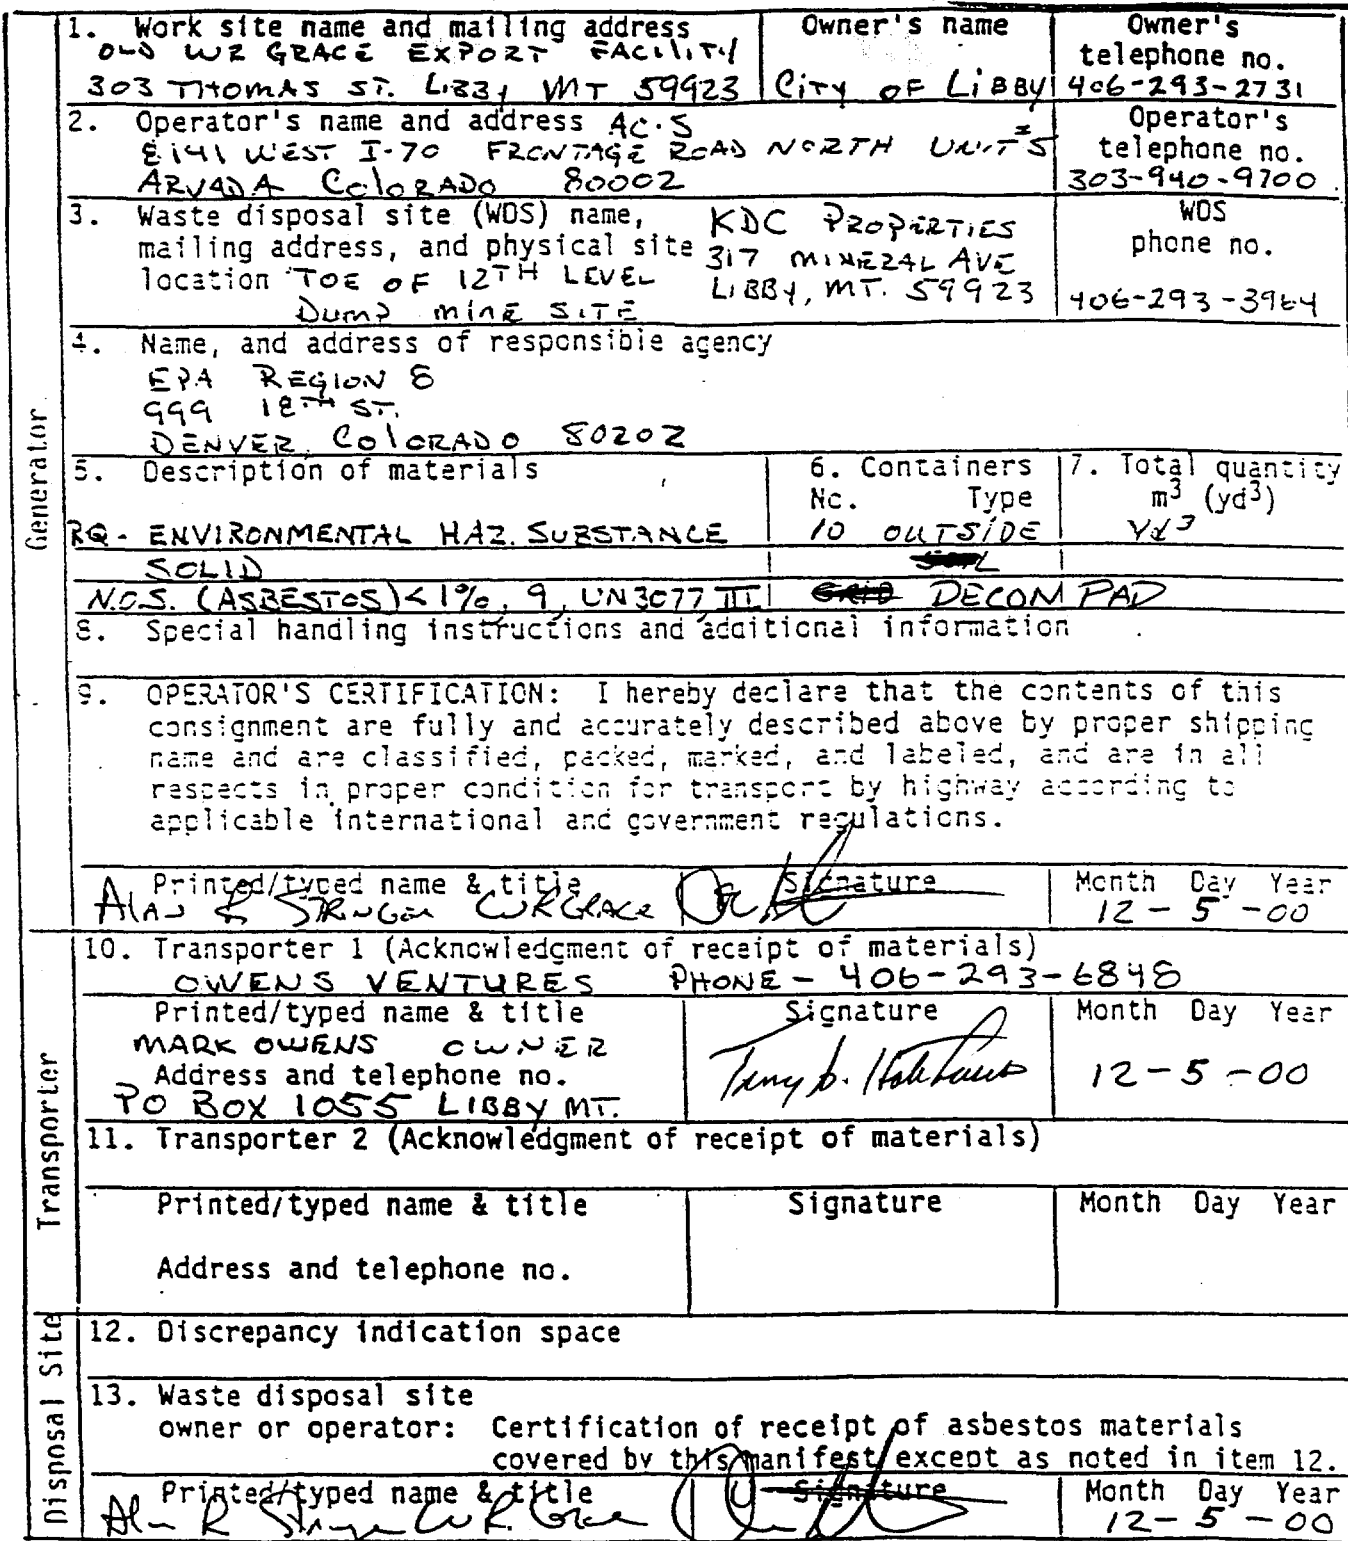 1. Work site name and mailing address
OLD WR GRACE EXPORT FACILITY
303 THOMAS ST. LIBBY MT 59923
Owner's name
CITY OF LIBBY
Owner's
telephone no.
406-293-2731
2. Operator's name and address AC.S
8141 WEST I-70 FRONTAGE ROAD NORTH UNIT #5
ARVADA COLORADO 80002
Operator's
telephone no.
303-940-9700
3. Waste disposal site (WDS) name,
mailing address, and physical site
location TOE OF 12TH LEVEL
DUMP MINE SITE
KDC PROPERTIES
317 MINERAL AVE
LIBBY, MT. 59923
WDS
phone no.
406-293-3964
Generator
4. Name, and address of responsible agency
EPA REGION 8
999 18TH ST.
DENVER, COLORADO 80202
5. Description of materials
RQ - ENVIRONMENTAL HAZ. SUBSTANCE
SOLID
N.O.S. (ASBESTOS) < 1%, 9, UN3077, III
6. Containers
No. Type
10 OUTSIDE
DECOM PAD
7. Total quantity
m³ (yd³)
Yd³
8. Special handling instructions and additional information
9. OPERATOR'S CERTIFICATION: I hereby declare that the contents of this
consignment are fully and accurately described above by proper shipping
name and are classified, packed, marked, and labeled, and are in all
respects in proper condition for transport by highway according to
applicable international and government regulations.
Printed/typed name & title
Alan R Stringer WR Grace
Signature
Month Day Year
12-5-00
Transporter
10. Transporter 1 (Acknowledgment of receipt of materials)
OWENS VENTURES PHONE - 406-293-6848
Printed/typed name & title
MARK OWENS OWNER
Address and telephone no.
PO BOX 1055 LIBBY MT.
Signature
Month Day Year
12-5-00
11. Transporter 2 (Acknowledgment of receipt of materials)
Printed/typed name & title
Address and telephone no.
Signature
Month Day Year
Disposal Site
12. Discrepancy indication space
13. Waste disposal site
owner or operator: Certification of receipt of asbestos materials
covered by this manifest except as noted in item 12.
Printed/typed name & title
Alan R Stringer W R Grace
Signature
Month Day Year
12-5-00